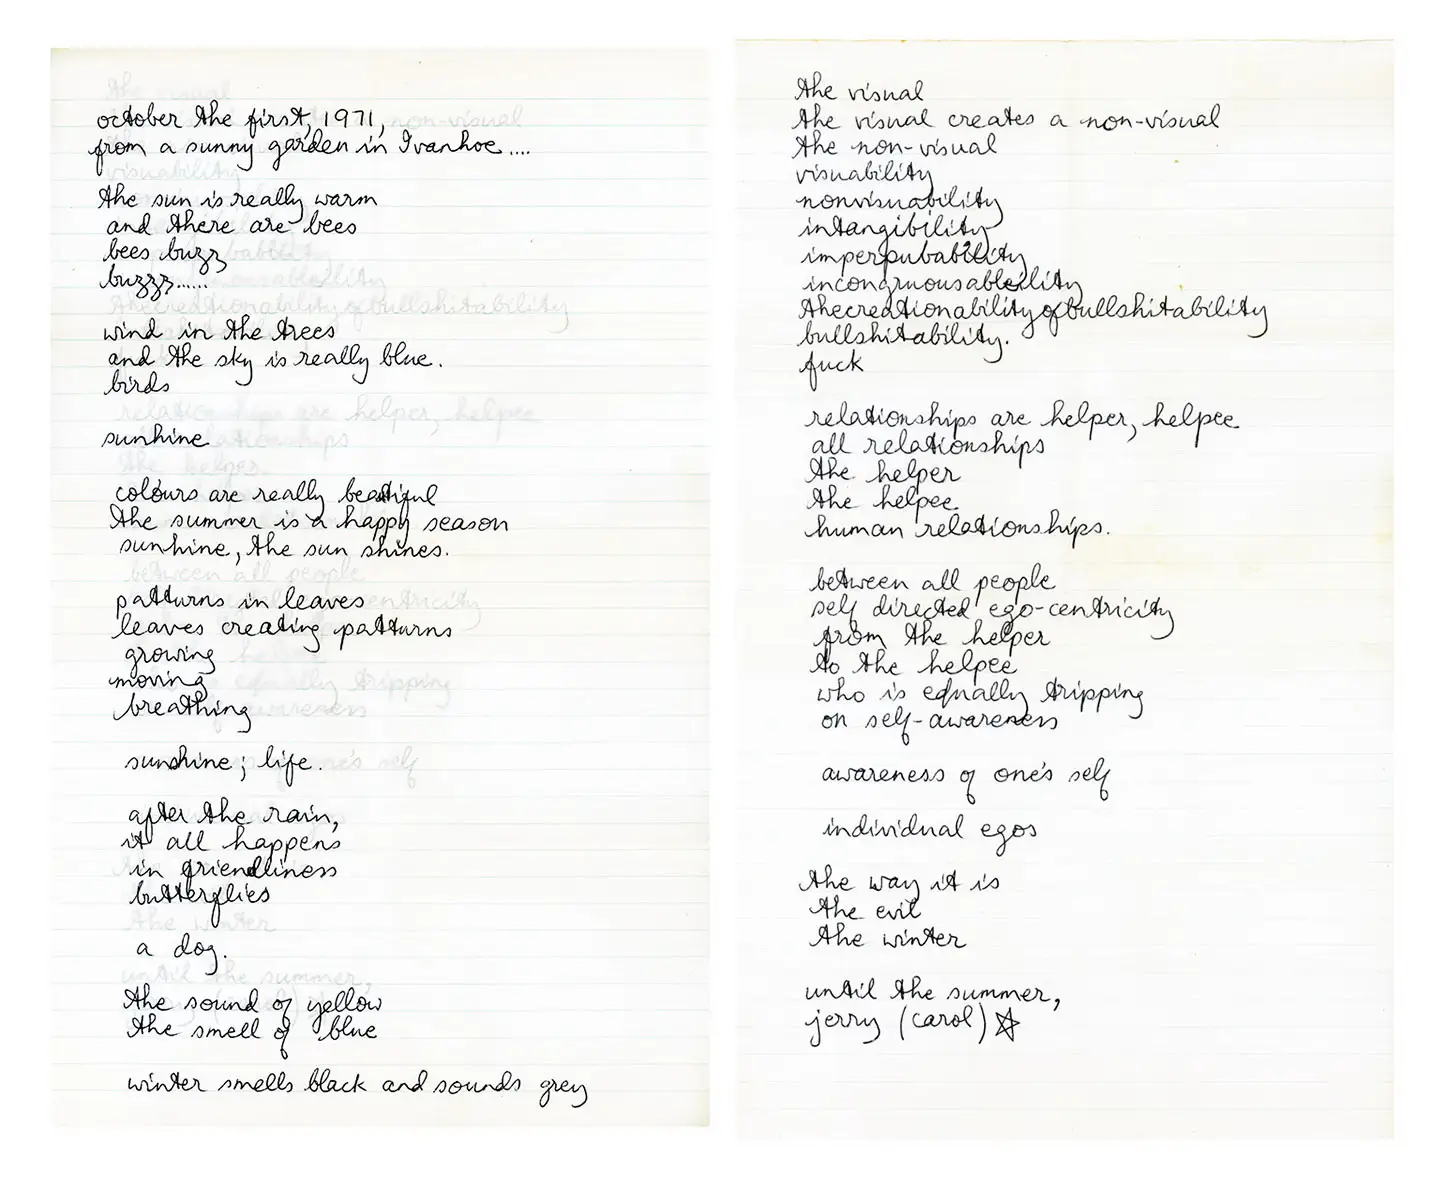 october the first, 1971,
from a sunny garden in Ivanhoe....
the sun is really warm
and there are bees
bees buzz
buzzz......
wind in the trees
and the sky is really blue.
birds
sunhine
colours are really beatiful
the summer is a happy season
sunhine, the sun shines.
patturns in leaves
leaves creating patturns
growing
moving
breathing
sunshine; life.
after the rain,
it all happens
in friendliness
butterflies
a dog.
the sound of yellow
the smell of blue
winter smells black and sounds grey
the visual
the visual creates a non-visual
the non-visual
visuability
nonvisuability
intangibility
imperpubability
incongruousableility
thecreationabilityofbullshitability
bullshitability.
fuck
relationships are helper, helpee
all relationships
the helper
the helpee
human relationships.
between all people
self directed ego-centricity
from the helper
to the helpee
who is equally tripping
on self-awareness
awareness of one's self
individual egos
the way it is
the evil
the winter
until the summer,
jerry (carol)